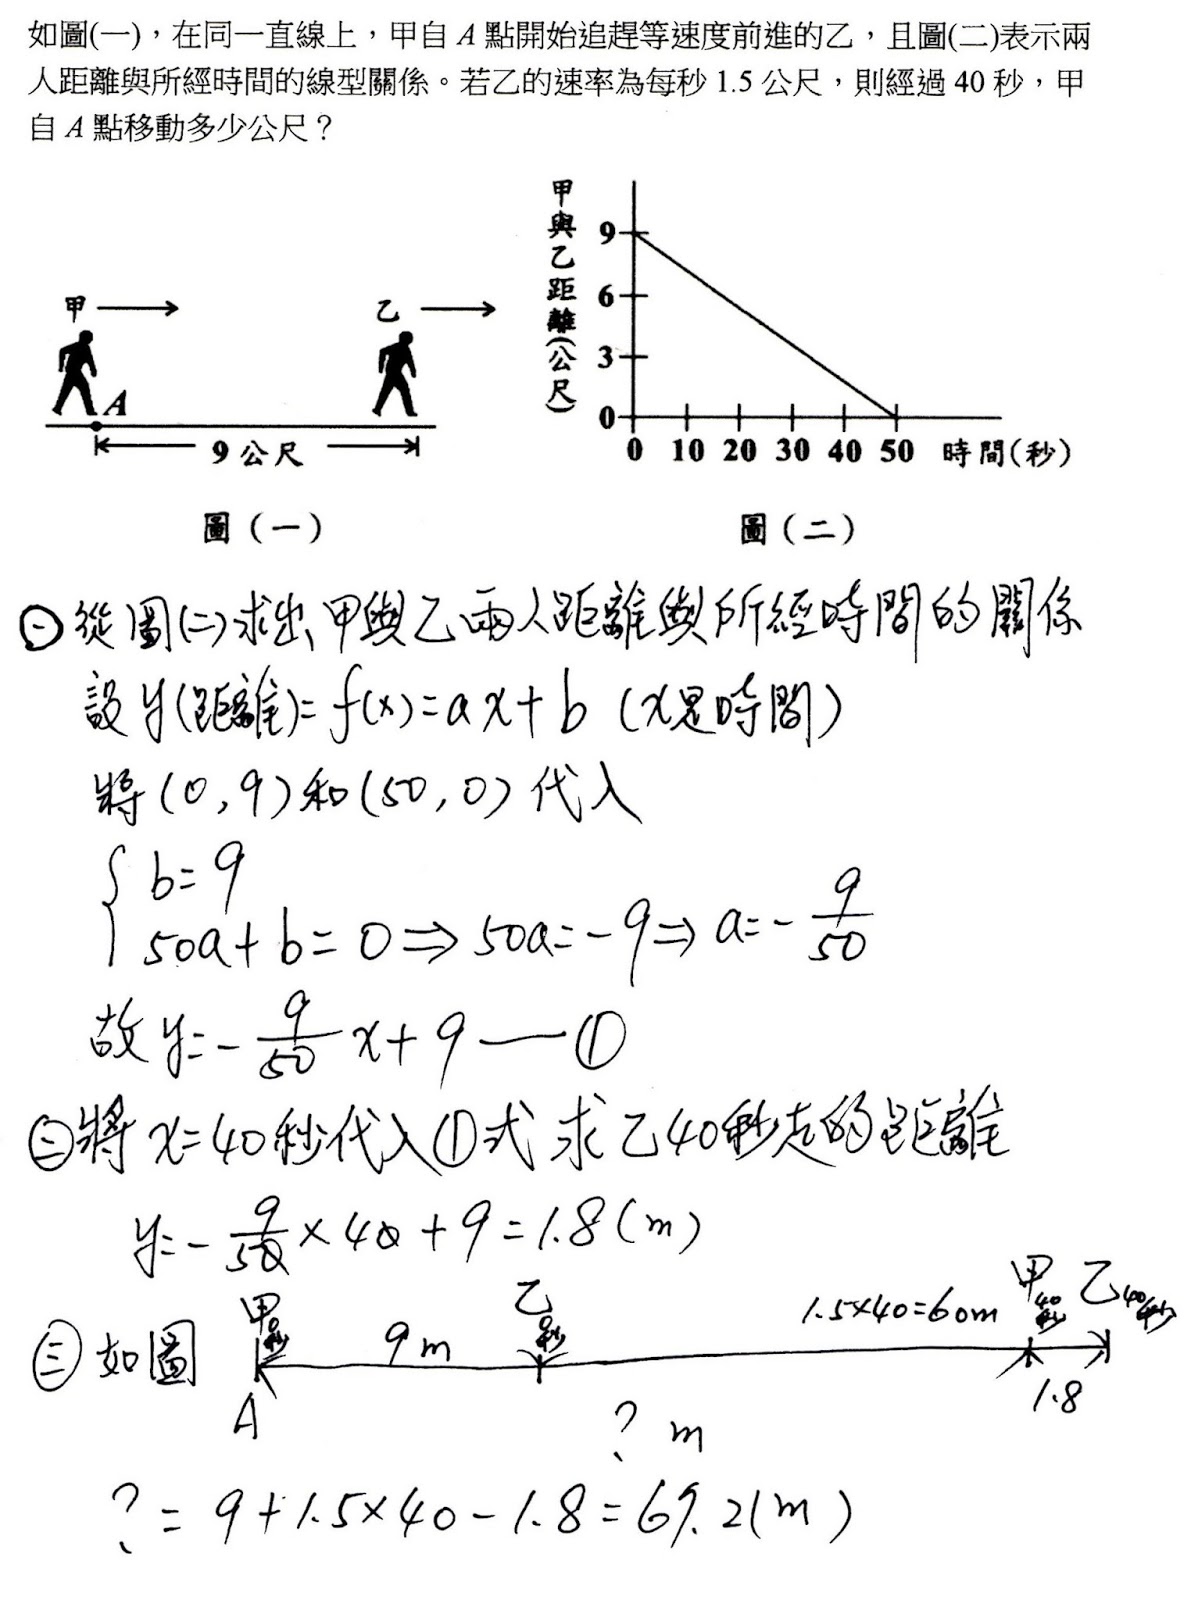 如圖(一)，在同一直線上，甲自 A 點開始追趕等速度前進的乙，且圖(二)表示兩
人距離與所經時間的線型關係。若乙的速率為每秒 1.5 公尺，則經過 40 秒，甲
自 A 點移動多少公尺？
甲
乙
A
9 公尺
圖(一)
甲與乙距離(公尺)
9
6
3
0
0 10 20 30 40 50 時間(秒)
圖(二)
㊀從圖(二)求出甲與乙兩人距離與所經時間的關係
設y(距離)=f(x)=ax+b (x是時間)
將(0,9)和(50,0)代入
{ b=9
50a+b=0⇒50a=-9⇒a=-9/50
故y=-9/50 x+9 — ①
㊁將x=40秒代入①式求乙40秒走的距離
y=-9/50×40+9=1.8(m)
㊂如圖
甲0秒
9m
乙0秒
1.5×40=60m
甲40秒
乙40秒
A
1.8
? m
?=9+1.5×40-1.8=67.2(m)